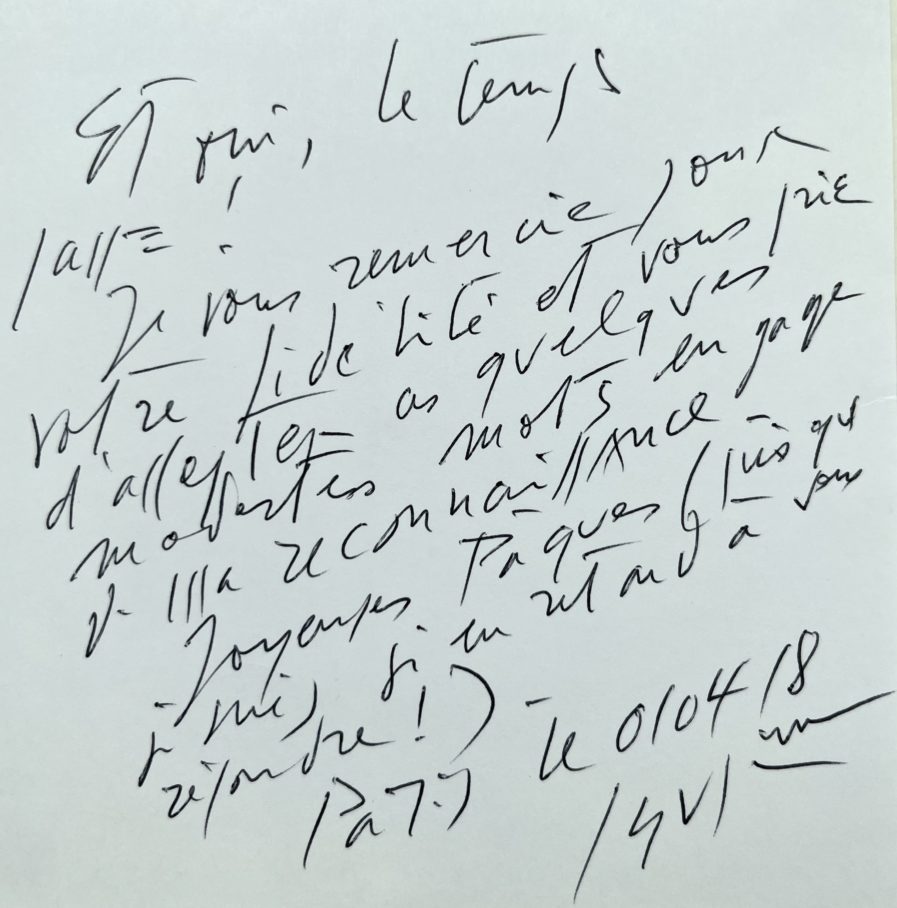 Et oui, le temps
passe !
Je vous remercie pour
votre fidélité et vous prie
d'accepter ces quelques
modestes mots en gage
de ma reconnaissance
Joyeuses Pâques (puisque
je suis si en retard à vous
répondre !) -
Paris le 01 04 18